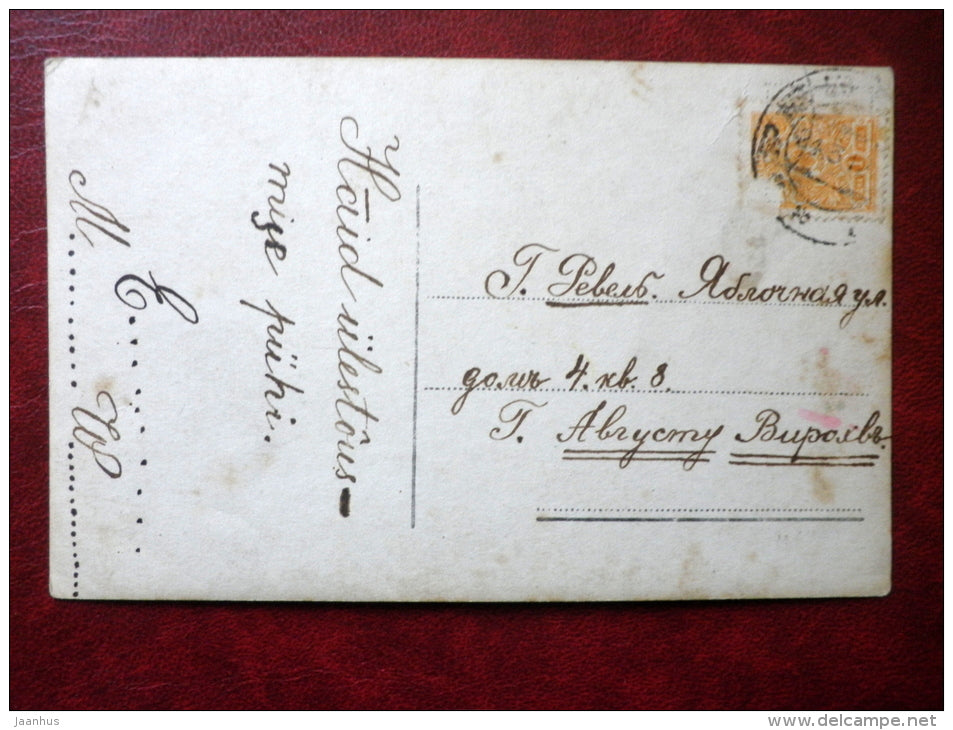 Häid ülestõus-
mise pühi.
M. E. W
Г. Ревель. Яблочная ул.
домъ 4. кв. 8.
Г. Августу
jaanhus
www.delcampe.net